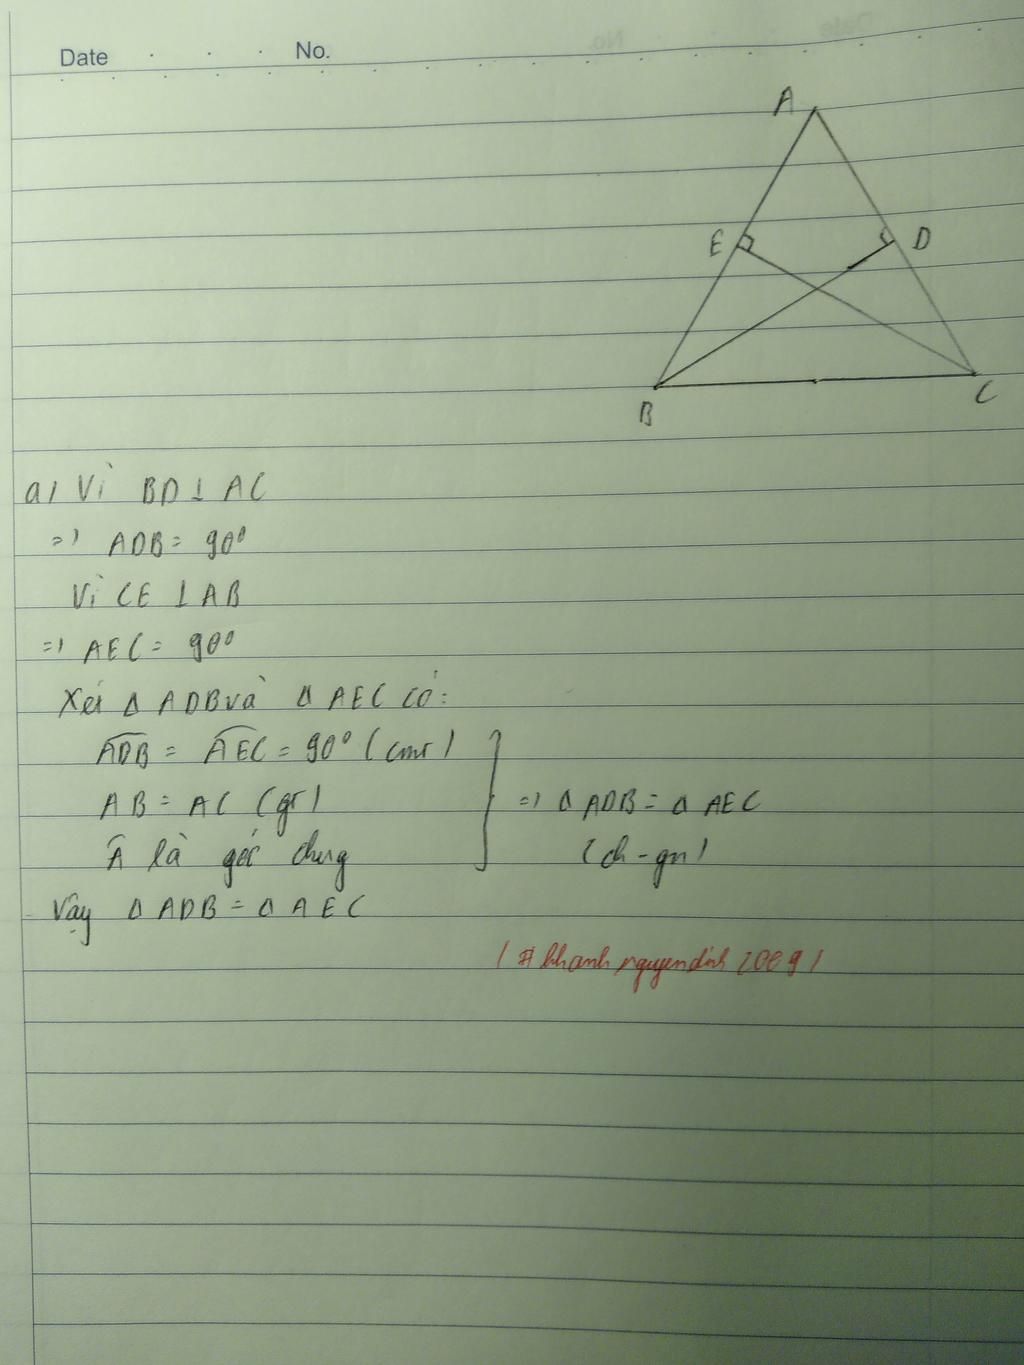 Date No.
A
E D
B C
a) Vì BD ⊥ AC
=) ADB = 90°
Vì CE ⊥ AB
=) AEC = 90°
Xét Δ ADB và Δ AEC có:
ADB = AEC = 90° (cmt)
AB = AC (gt)
=) Δ ADB = Δ AEC
Â là góc chung
(ch - gn)
Vậy Δ ADB = Δ AEC
(# khanhnguyendinh2009)